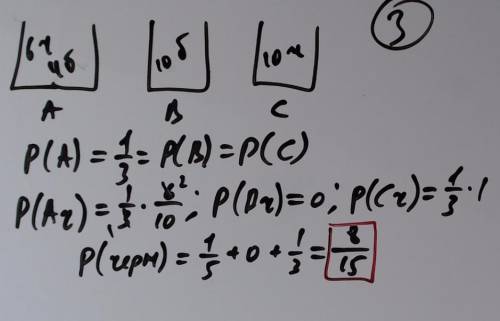 3
6ч 4б 10б 10ч
A B C
P(A) = 1/3 = P(B) = P(C)
P(Aч) = 1/3 · 6²/10 ; P(Bч) = 0 ; P(Cч) = 1/3 · 1
P(черн) = 1/5 + 0 + 1/3 = 8/15